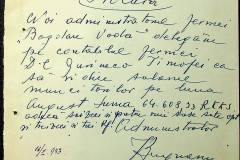 Noi administratorul fermei
"Bogdan Vodă" delegăm
pe contabilul fermei
D-l Gurinecu Timofei ca
să ridice salariile
muncitorilor pe luna
August suma 64.608,33 RKKS
adică șaizeci și patru mii șase sute opt
și treizeci și trei Pf. Administrator